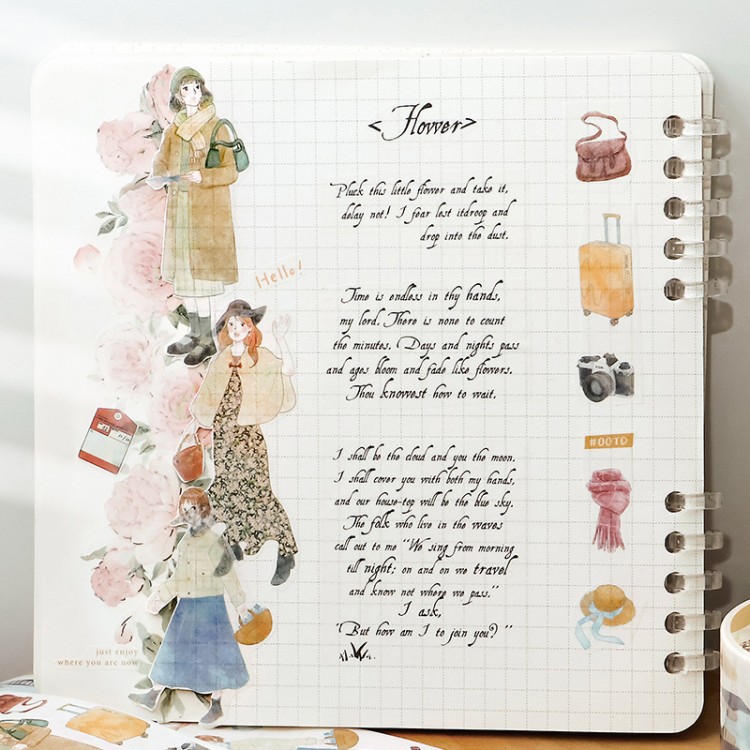 <Flower>
Pluck this little flower and take it,
delay not! I fear lest itdroop and
drop into the dust.
Time is endless in thy hands,
my lord. There is none to count
the minutes. Days and nights pass
and ages bloom and fade like flowers.
Thou knowest how to wait.
I shall be the cloud and you the moon.
I shall cover you with both my hands,
and our house-top will be the blue sky.
The folk who live in the waves
call out to me "We sing from morning
till night; on and on we travel
and know not where we pass."
I ask,
"But how am I to join you?"
Hello!
#OOTD
just enjoy
where you are now